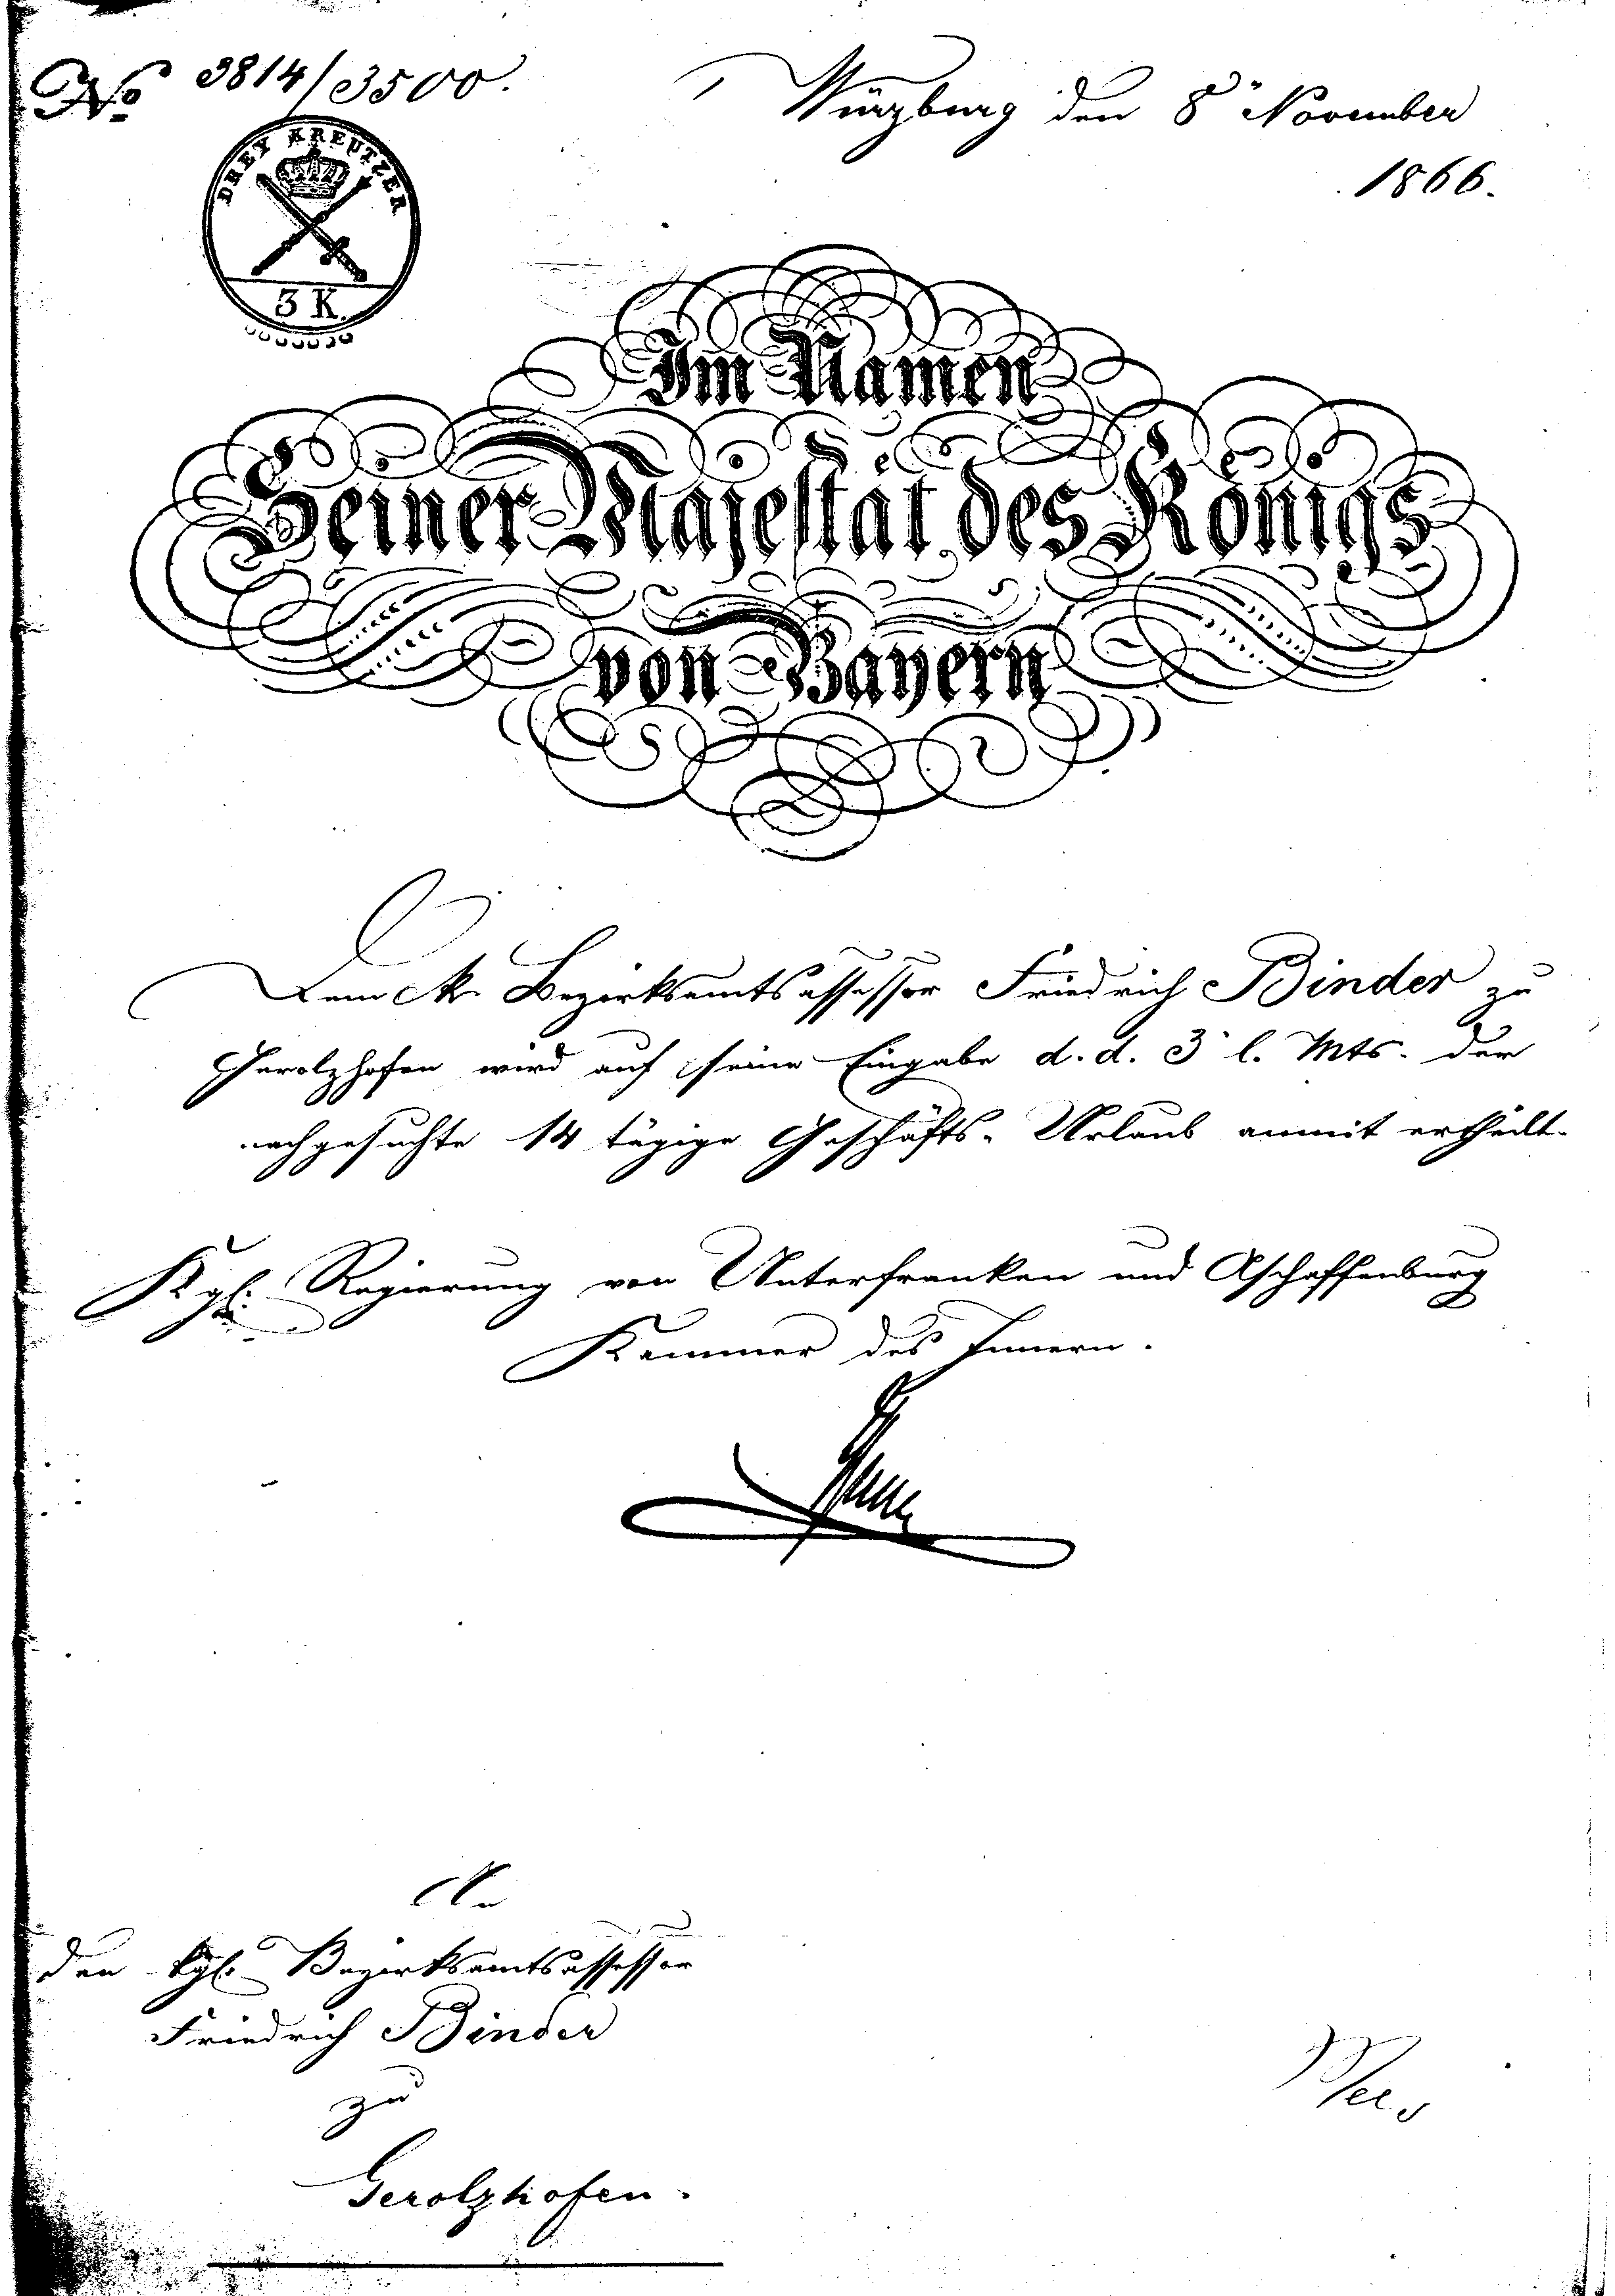 No 3814/3500.
Würzburg den 8" November
1866.
DREY KREUTZER
3 K.
Im Namen
Seiner Majestät des Königs
von Bayern
Dem k. Bezirksamtsassessor Friedrich Binder zu
Gerolzhofen wird auf seine Eingabe d. d. 3 l. Mts. der
nachgesuchte 14 tägige Geschäfts-Urlaub anmit ertheilt.
Kgl. Regierung von Unterfranken und Aschaffenburg
Kammer des Innern.
An
den kgl. Bezirksamtsassessor
Friedrich Binder
zu
Gerolzhofen.